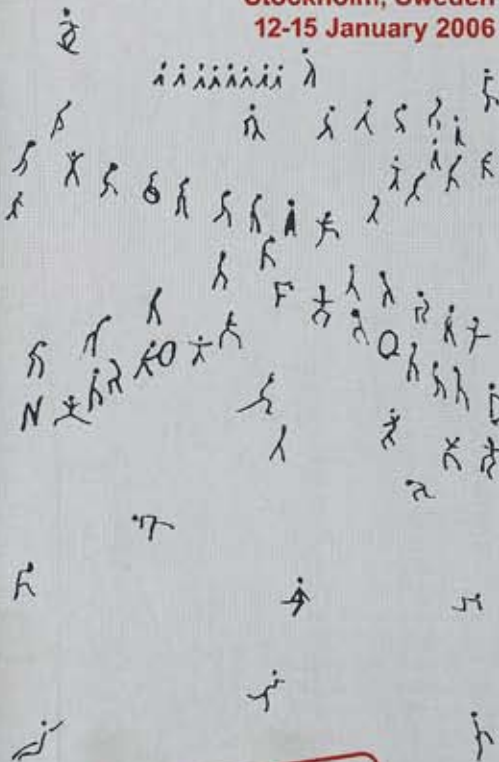 Stockholm, Sweden
12-15 January 2006
F
O
Q
N